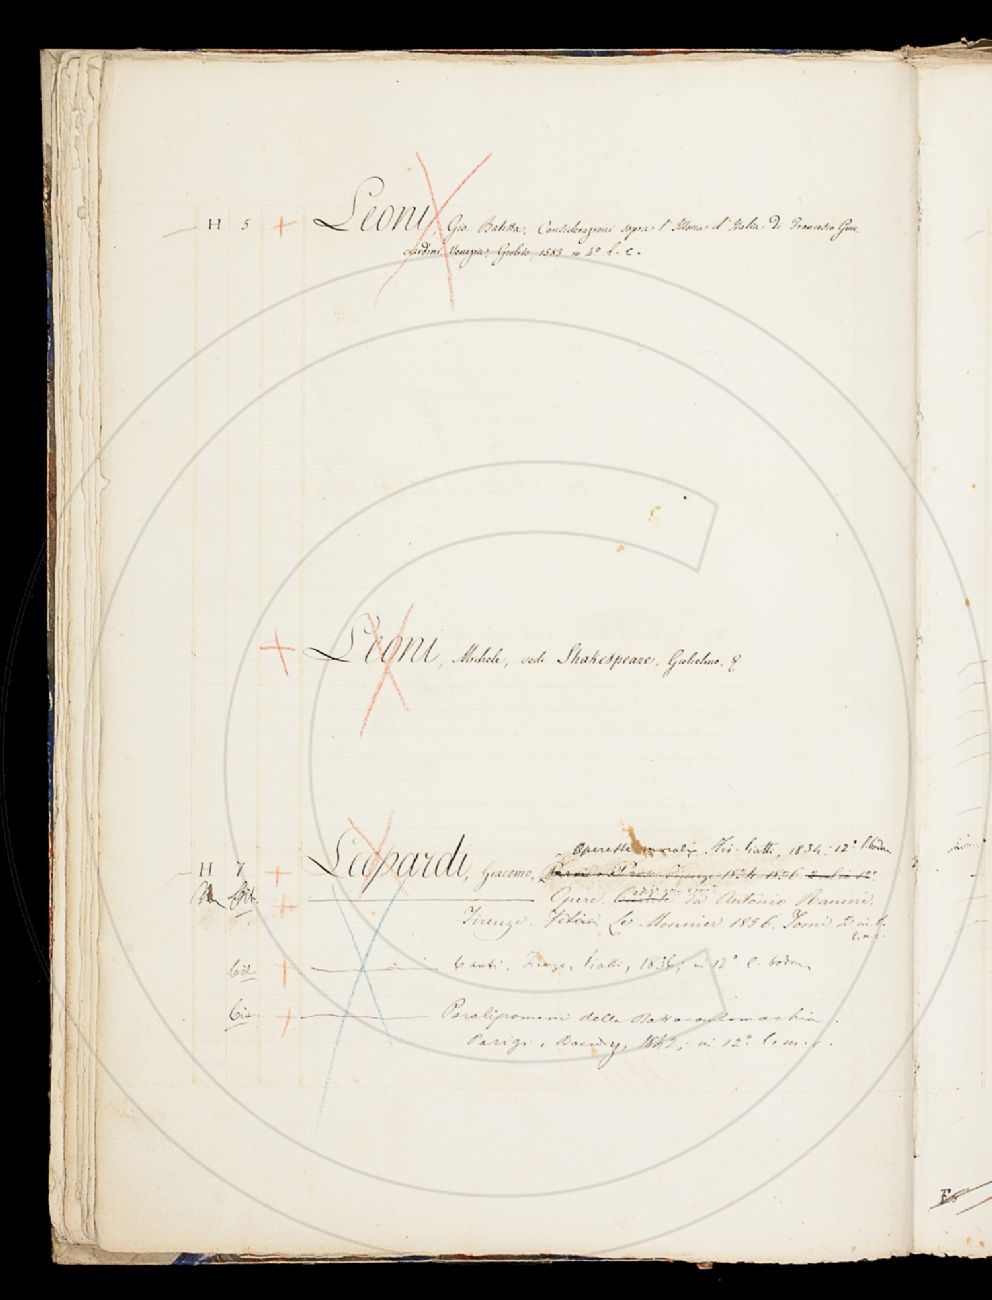 H 5 + Leoni, Gio. Batista, Considerazioni sopra l'Istoria d'Italia di Francesco Guic
ciardini Venezia, Giolito, 1583 in 4° l. c.
+ Leoni, Michele, vedi Shakespeare, Guglielmo. &
Operette morali Piatti, 1834. 12°
H 7 + Leopardi, Giacomo, Versi e Prose. Firenze 1824 1826 12°
+ Opere, da Antonio Ranieri.
Firenze. Felice Le Monnier 1856. Tomi 2 in
+ Canti. Firenze, Piatti, 1836; in 12°
+ Paralipomeni della Batracomiomachia.
Parigi, Baudry, 1842; in 12°